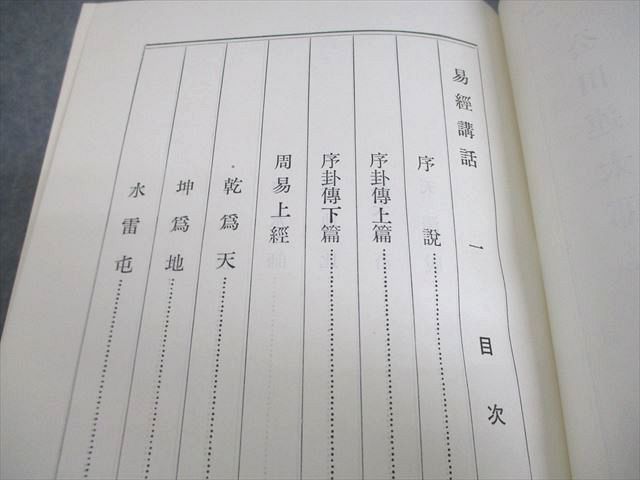 易經講話 一 目次
序說
序卦傳上篇
序卦傳下篇
周易上經
乾爲天
坤爲地
水雷屯